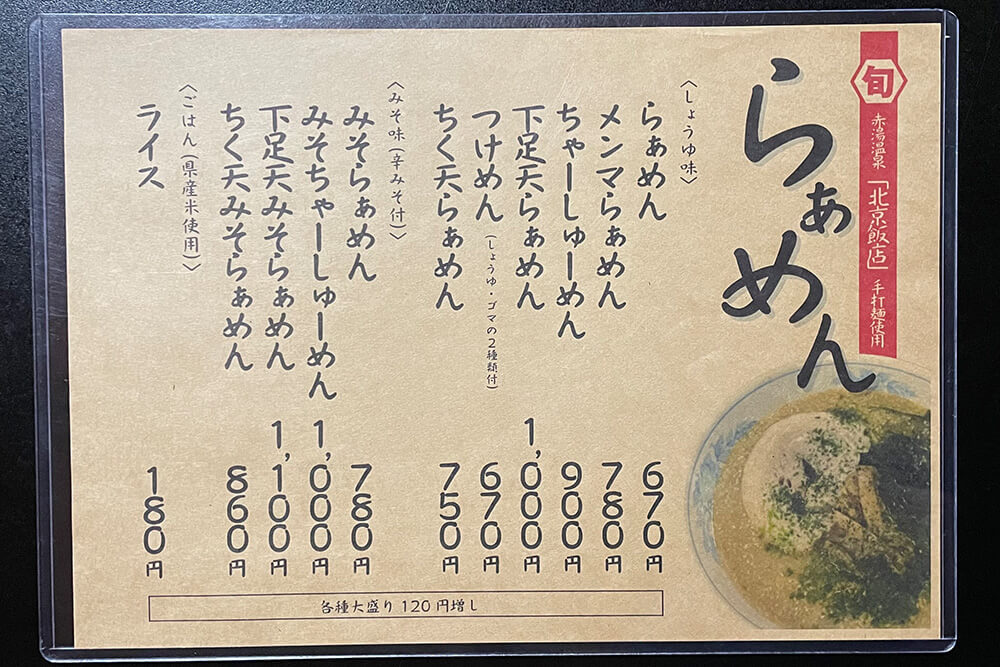 旬
赤湯温泉「北京飯店」手打麺使用
らぁめん
〈しょうゆ味〉
らぁめん 670円
メンマらぁめん 780円
ちゃーしゅーめん 900円
下足天らぁめん 1,000円
つけめん(しょうゆ・ゴマの2種類付) 670円
ちく天らぁめん 750円
〈みそ味(辛みそ付)〉
みそらぁめん 780円
みそちゃーしゅーめん 1,000円
下足天みそらぁめん 1,100円
ちく天みそらぁめん 860円
〈ごはん(県産米使用)〉
ライス 180円
各種大盛り120円増し